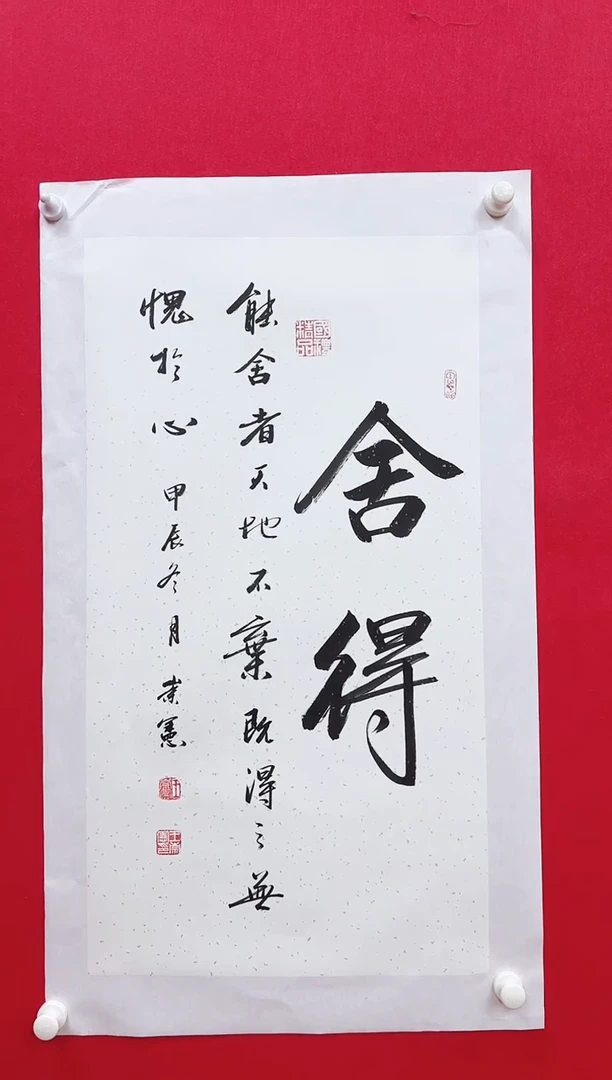 舍得
能舍者天地不棄既得之無
愧於心 甲辰冬月 崇憲
國禮精品